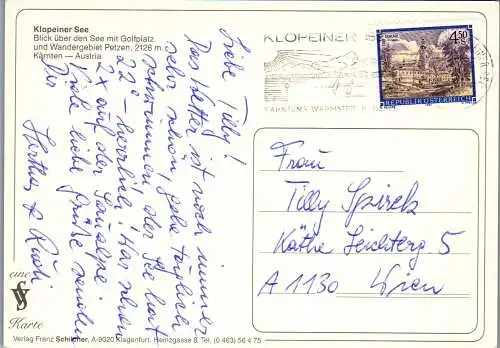 Klopeiner See
Blick über den See mit Golfplatz
und Wandergebiet Petzen, 2126 m.
Kärnten — Austria
KLOPEINER S
KÄRNTENS WÄRMSTER
4.50
REPUBLIK ÖSTERREICH
Liebe Tilly!
Das Wetter ist noch immer
sehr schön, gehe täglich
schwimmen der See hat
22° - herrlich! War schon
2x auf der Saualpe.
Viele liebe Grüße senden
Dir
Hertha & Rudi
Frau
Tilly
Käthe Leichterg. 5
A 1130 Wien
eine
VS
Karte
Verlag Franz Schilcher, A-9020 Klagenfurt, Heinzgasse 8, Tel. (0 463) 56 4 75